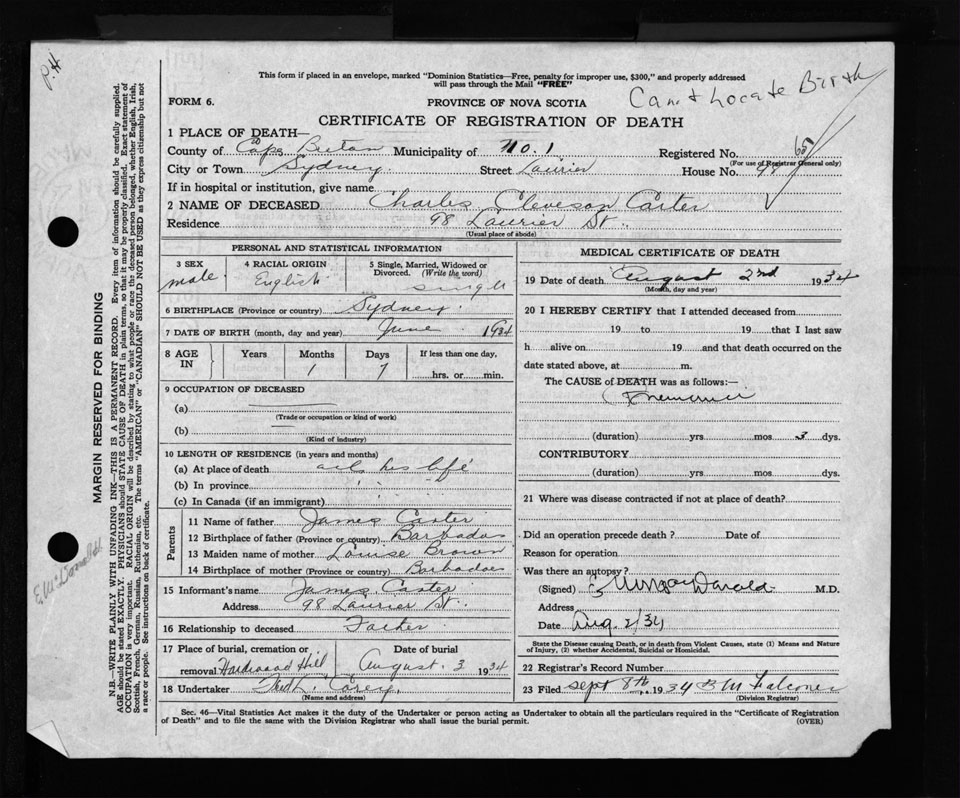 This form if placed in an envelope, marked "Dominion Statistics—Free, penalty for improper use, $300," and properly addressed
will pass through the Mail "FREE"
Can't Locate Birth
P.H
FORM 6.
PROVINCE OF NOVA SCOTIA
CERTIFICATE OF REGISTRATION OF DEATH
1 PLACE OF DEATH—
County of Cape Breton Municipality of No. 1 Registered No.
(For use of Registrar General only)
City or Town Sydney Street Laurier House No. 98
If in hospital or institution, give name
2 NAME OF DECEASED Charles Cleveson Carter
Residence 98 Laurier St.
(Usual place of abode)
PERSONAL AND STATISTICAL INFORMATION
3 SEX 4 RACIAL ORIGIN 5 Single, Married, Widowed or
Divorced. (Write the word)
male. English single
6 BIRTHPLACE (Province or country) Sydney.
7 DATE OF BIRTH (month, day and year) June 1934
8 AGE IN Years Months Days If less than one day,
1 7 hrs. or min.
9 OCCUPATION OF DECEASED
(a)
(Trade or occupation or kind of work)
(b)
(Kind of industry)
10 LENGTH OF RESIDENCE (in years and months)
(a) At place of death all his life
(b) In province " "
(c) In Canada (if an immigrant)
Parents
11 Name of father James Carter
12 Birthplace of father (Province or country) Barbados
13 Maiden name of mother Louise Brown
14 Birthplace of mother (Province or country) Barbadoes
15 Informant's name James Carter
Address 98 Laurier St.
16 Relationship to deceased Father
17 Place of burial, cremation or Date of burial
removal Hardwood Hill August 3 1934
18 Undertaker
(Name and address)
MEDICAL CERTIFICATE OF DEATH
19 Date of death August 2nd 1934
(Month, day and year)
20 I HEREBY CERTIFY that I attended deceased from
19 to 19 that I last saw
h alive on 19 and that death occurred on the
date stated above, at m.
The CAUSE of DEATH was as follows:—
(duration) yrs mos 3 dys.
CONTRIBUTORY
(duration) yrs mos dys.
21 Where was disease contracted if not at place of death?
Did an operation precede death ? Date of
Reason for operation
Was there an autopsy?
(Signed) M.D.
Address
Date Aug. 2/34
State the Disease causing Death, or in death from Violent Causes, state (1) Means and Nature
of Injury, (2) whether Accidental, Suicidal or Homicidal.
22 Registrar's Record Number
23 Filed Sept 8th 1934 B M Falconer
(Division Registrar)
Sec. 46—Vital Statistics Act makes it the duty of the Undertaker or person acting as Undertaker to obtain all the particulars required in the "Certificate of Registration
of Death" and to file the same with the Division Registrar who shall issue the burial permit.
(OVER)
MARGIN RESERVED FOR BINDING
N.B.—WRITE PLAINLY WITH UNFADING INK—THIS IS A PERMANENT RECORD. Every item of information should be carefully supplied.
AGE should be stated EXACTLY. PHYSICIANS should STATE CAUSE OF DEATH in plain terms, so that it may be properly classified. Exact statement of
OCCUPATION is very important. RACIAL ORIGIN will be described by stating to what people or race the deceased person belonged, whether English, Irish,
Scottish, French, German, Russian, Ruthenian, etc. The terms "AMERICAN" or "CANADIAN" SHOULD NOT BE USED as they express citizenship but not
a race or people. See instructions on back of certificate.